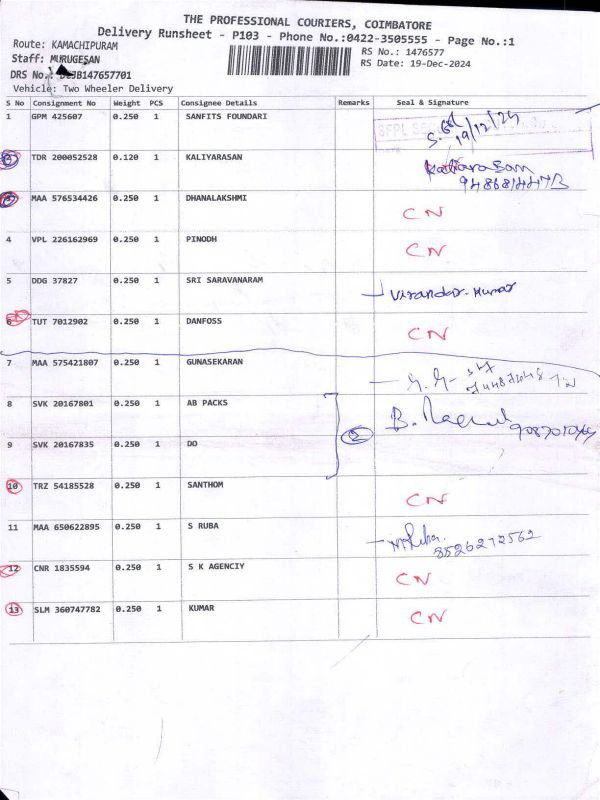 THE PROFESSIONAL COURIERS, COIMBATORE
Delivery Runsheet - P103 - Phone No.:0422-3505555 - Page No.:1
Route: KAMACHIPURAM
RS No.: 1476577
Staff: MURUGESAN
RS Date: 19-Dec-2024
DRS No.: B147657701
Vehicle: Two Wheeler Delivery
S No Consignment No Weight PCS Consignee Details Remarks Seal & Signature
1 GPM 425607 0.250 1 SANFITS FOUNDARI 19/12/24
2 TDR 200052528 0.120 1 KALIYARASAN Kaliarasan
3 MAA 576534426 0.250 1 DHANALAKSHMI CN
4 VPL 226162969 0.250 1 PINODH CN
5 DDG 37827 0.250 1 SRI SARAVANARAM Virandar.Kumar
6 TUT 7012902 0.250 1 DANFOSS CN
7 MAA 575421807 0.250 1 GUNASEKARAN
8 SVK 20167801 0.250 1 AB PACKS
9 SVK 20167835 0.250 1 DO
10 TRZ 54185528 0.250 1 SANTHOM CN
11 MAA 650622895 0.250 1 S RUBA
8526272562
12 CNR 1835594 0.250 1 S K AGENCIY CN
13 SLM 360747782 0.250 1 KUMAR CN